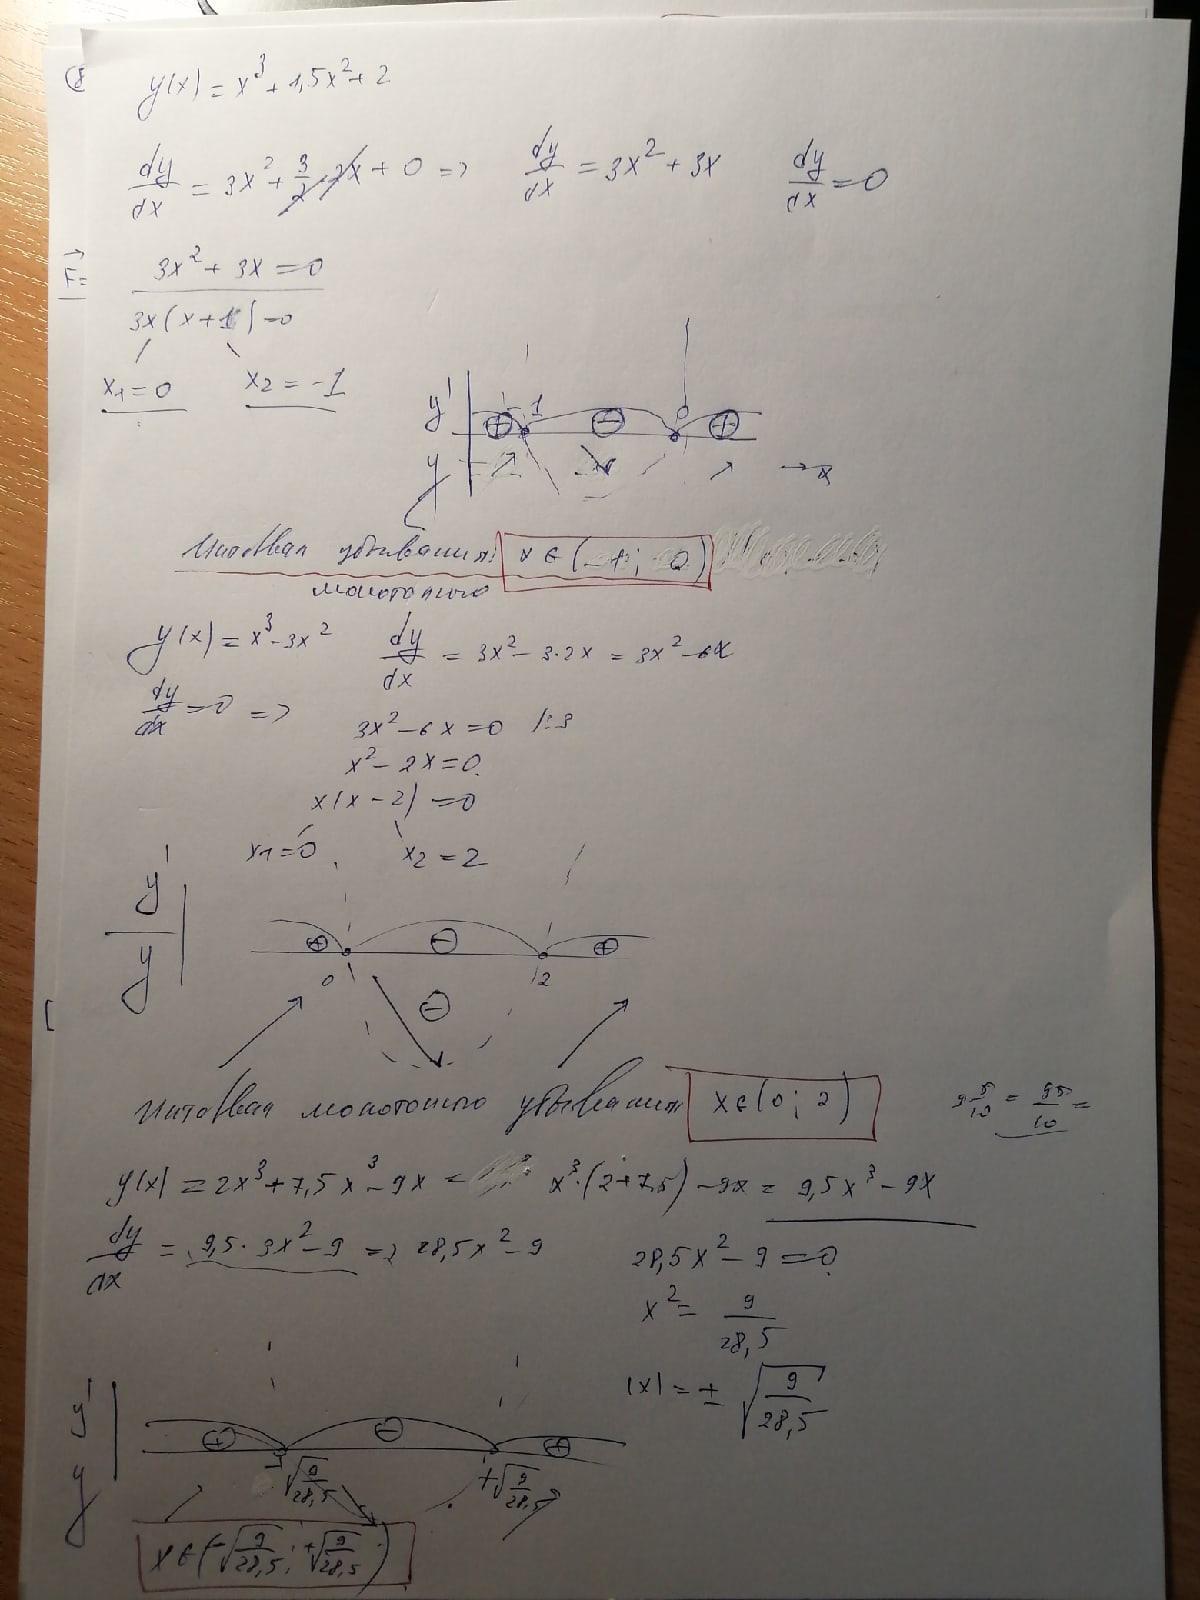 y(x) = x³ + 1,5x² + 2
dy/dx = 3x² + 3/2·2x + 0 => dy/dx = 3x² + 3x dy/dx = 0
F=
3x² + 3x = 0
3x(x+1) = 0
x₁ = 0 x₂ = -1
y' + -1 − 0 +
y → x
Интервал убывания x ∈ (-1; 0)
монотонного
y(x) = x³ - 3x² dy/dx = 3x² - 3·2x = 3x² - 6x
dy/dx = 0 =>
3x² - 6x = 0 |:3
x² - 2x = 0
x(x - 2) = 0
x₁ = 0 x₂ = 2
y' + − +
y 0 2
−
Интервал монотонного убывания x ∈ (0; 2)
9 5/10 = 95/10 =
y(x) = 2x³ + 7,5x³ - 9x = x³·(2+7,5) - 9x = 9,5x³ - 9x
dy/dx = 9,5·3x² - 9 => 28,5x² - 9
28,5x² - 9 = 0
x² = 9/28,5
|x| = ± √(9/28,5)
y' + − +
y -√(9/28,5) +√(9/28,5)
x ∈ (-√(9/28,5); +√(9/28,5))